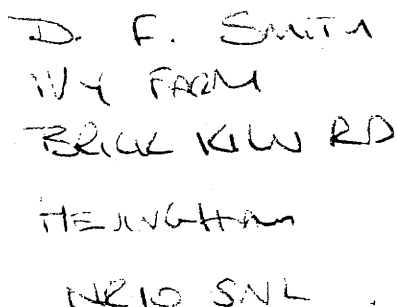 D. F. SMITH
IVY FARM
BRICK KILN RD
HEVINGHAM
NR10 5NL